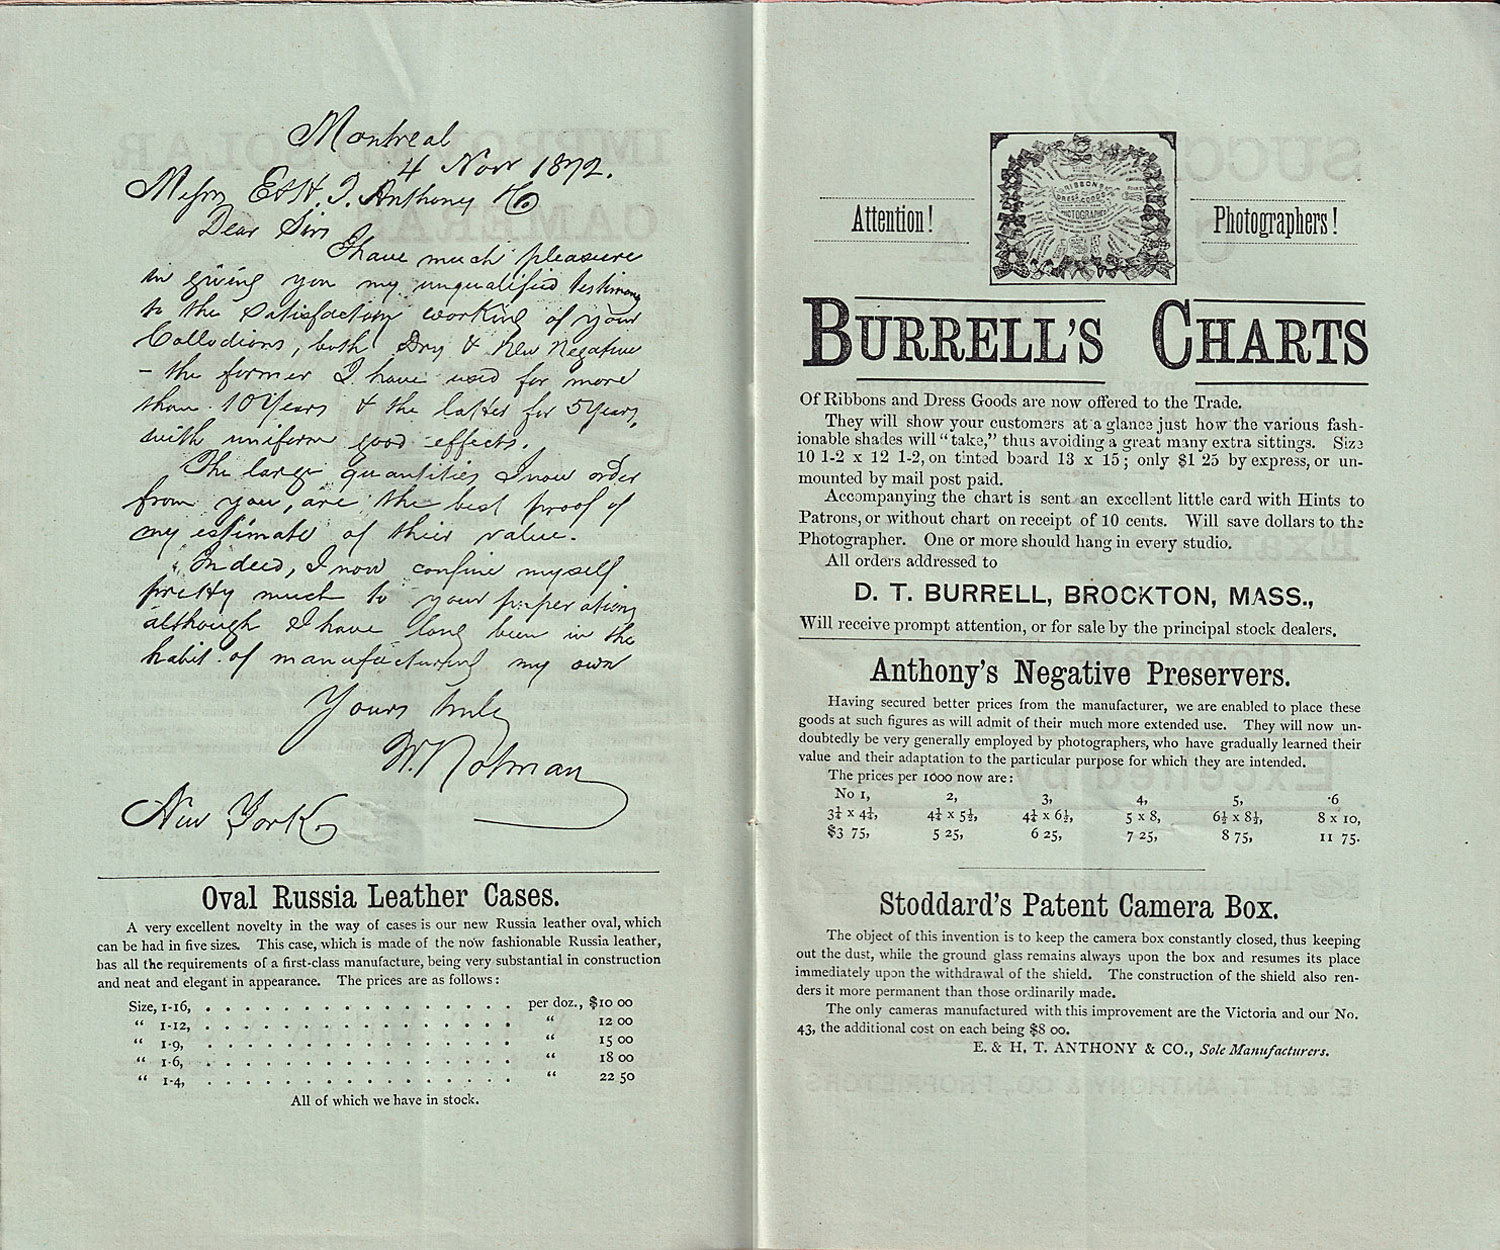 Montreal
4 Nov 1872.
Messrs E & H. T. Anthony & Co
Dear Sirs
I have much pleasure
in giving you my unqualified testimony
to the satisfactory working of your
Collodions, both Dry & New Negative
– the former I have used for more
than 10 years & the latter for 5 years,
with uniform good effects.
The large quantities I now order
from you, are the best proof of
my estimate of their value.
Indeed, I now confine myself
pretty much to your preparations
although I have long been in the
habit of manufacturing my own
Yours truly
W. Notman
New York
Oval Russia Leather Cases.
A very excellent novelty in the way of cases is our new Russia leather oval, which
can be had in five sizes. This case, which is made of the now fashionable Russia leather,
has all the requirements of a first-class manufacture, being very substantial in construction
and neat and elegant in appearance. The prices are as follows:
Size, 1-16, . . . . . . . . . . . . . . . . per doz., $10 00
“ 1-12, . . . . . . . . . . . . . . . . “ 12 00
“ 1-9, . . . . . . . . . . . . . . . . “ 15 00
“ 1-6, . . . . . . . . . . . . . . . . “ 18 00
“ 1-4, . . . . . . . . . . . . . . . . “ 22 50
All of which we have in stock.
RIBBONS
DRESS GOODS
PHOTOGRAPHED
Attention! Photographers!
BURRELL'S CHARTS
Of Ribbons and Dress Goods are now offered to the Trade.
They will show your customers at a glance just how the various fash-
ionable shades will “take,” thus avoiding a great many extra sittings. Size
10 1-2 x 12 1-2, on tinted board 13 x 15; only $1 25 by express, or un-
mounted by mail post paid.
Accompanying the chart is sent an excellent little card with Hints to
Patrons, or without chart on receipt of 10 cents. Will save dollars to the
Photographer. One or more should hang in every studio.
All orders addressed to
D. T. BURRELL, BROCKTON, MASS.,
Will receive prompt attention, or for sale by the principal stock dealers.
Anthony's Negative Preservers.
Having secured better prices from the manufacturer, we are enabled to place these
goods at such figures as will admit of their much more extended use. They will now un-
doubtedly be very generally employed by photographers, who have gradually learned their
value and their adaptation to the particular purpose for which they are intended.
The prices per 1000 now are:
No 1, 2, 3, 4, 5, 6
3¼ x 4¼, 4¼ x 5½, 4¼ x 6½, 5 x 8, 6½ x 8½, 8 x 10,
$3 75, 5 25, 6 25, 7 25, 8 75, 11 75.
Stoddard's Patent Camera Box.
The object of this invention is to keep the camera box constantly closed, thus keeping
out the dust, while the ground glass remains always upon the box and resumes its place
immediately upon the withdrawal of the shield. The construction of the shield also ren-
ders it more permanent than those ordinarily made.
The only cameras manufactured with this improvement are the Victoria and our No.
43, the additional cost on each being $8 00.
E. & H. T. ANTHONY & CO., Sole Manufacturers.